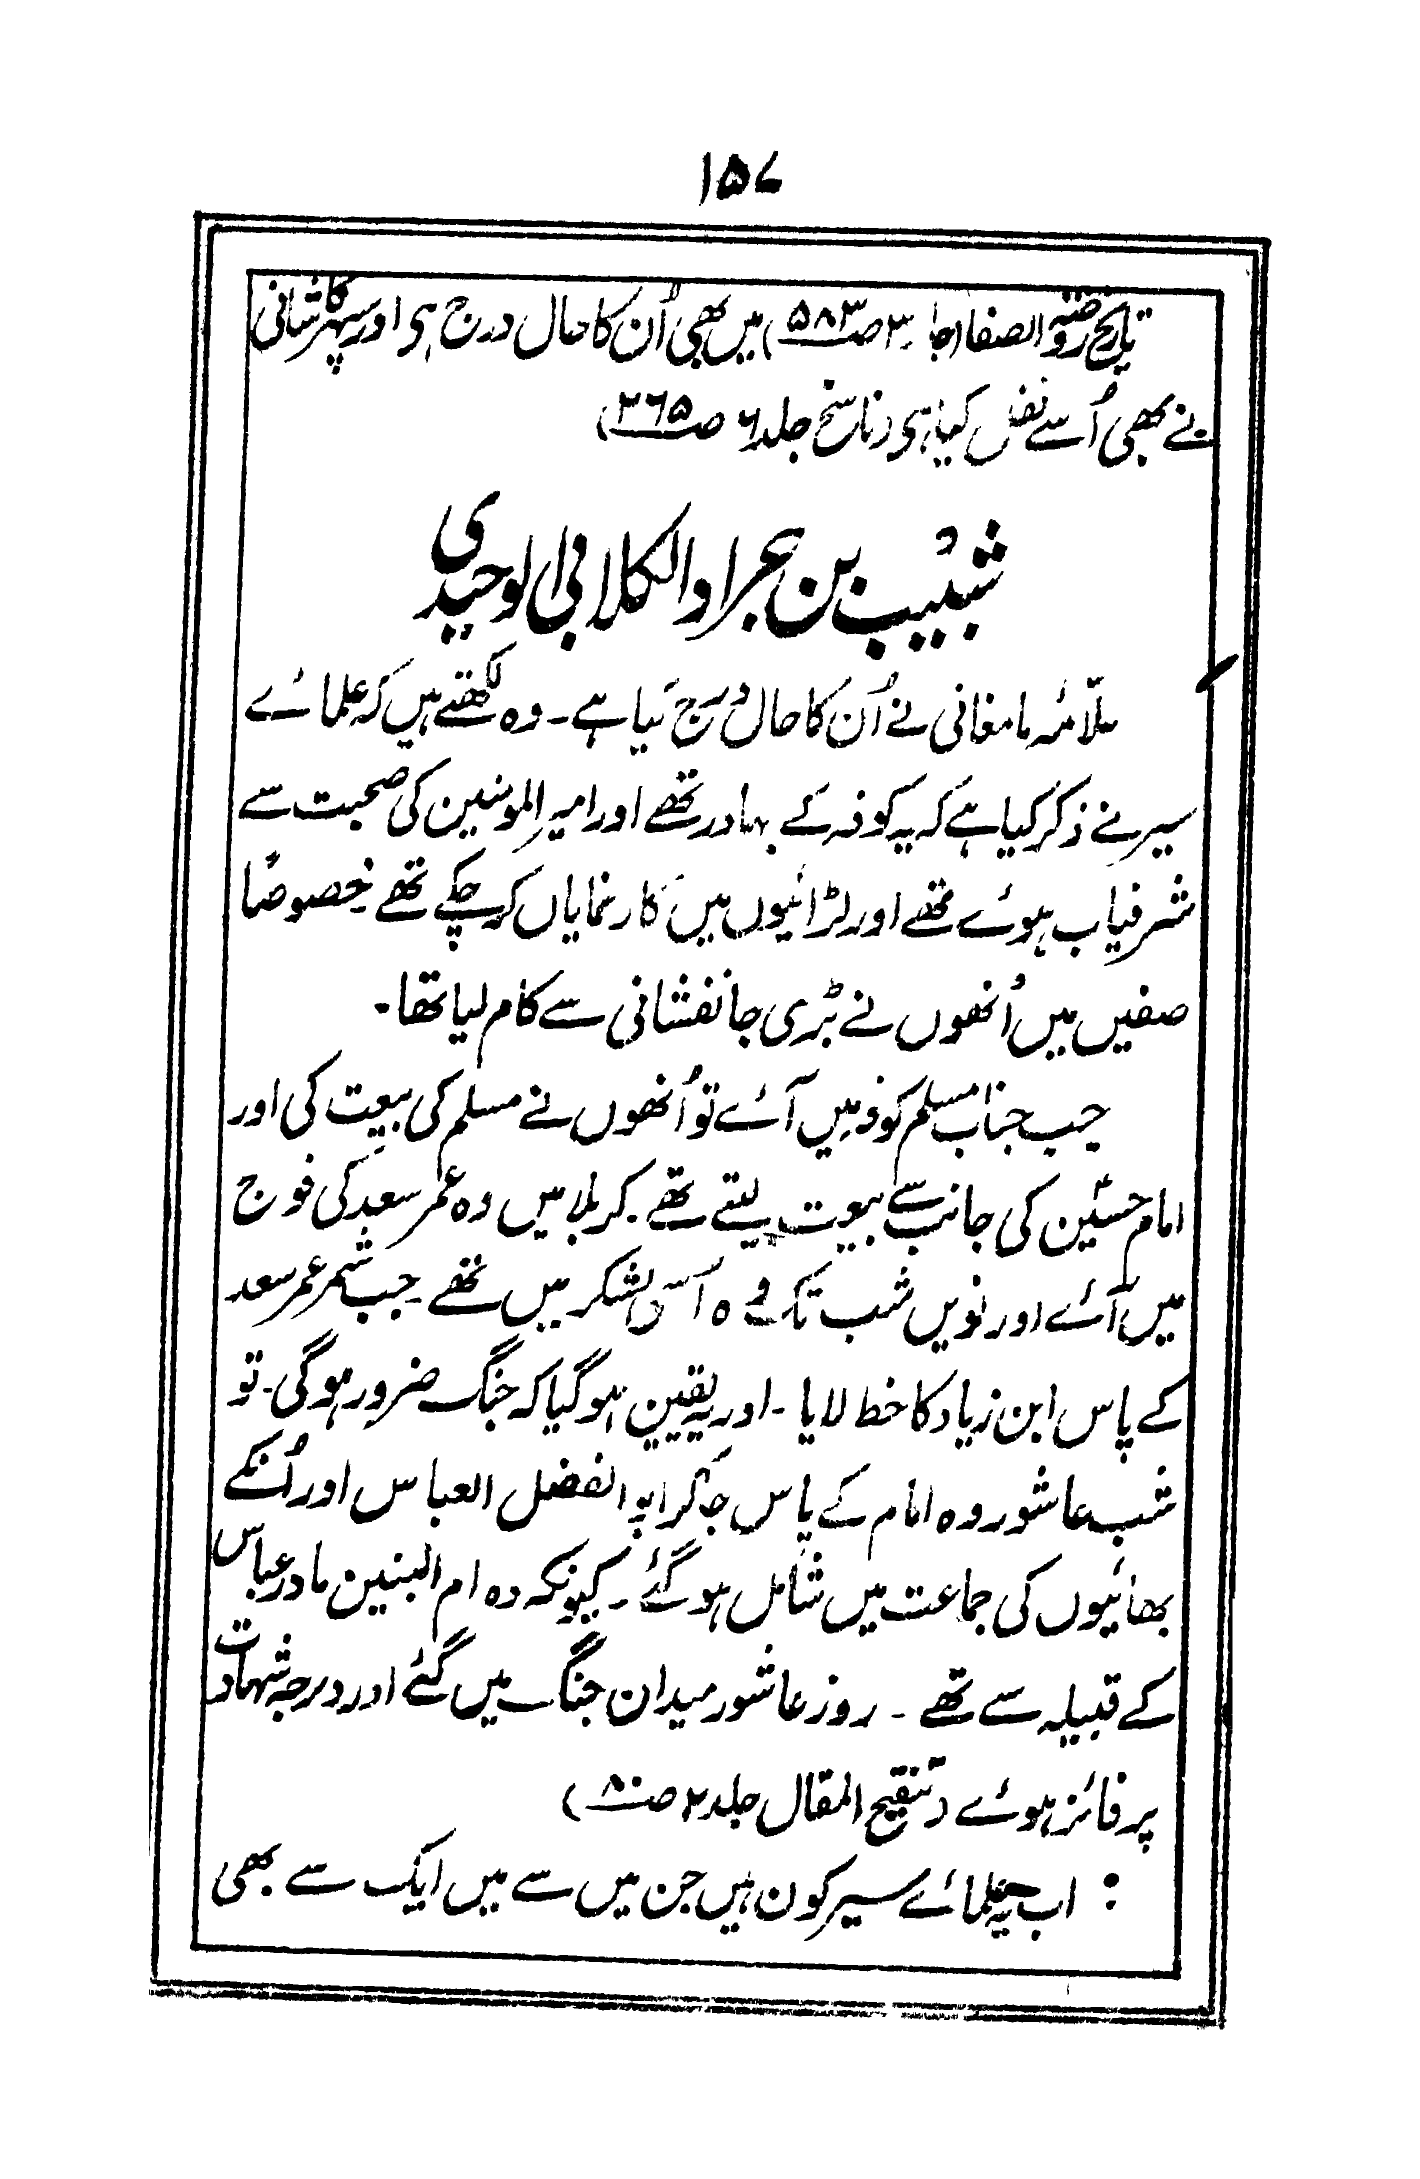 ۱۵۷
تاریخ روضۃ الصفا (جلد ۳ ص ۵۸۳) میں بھی اُن کا حال درج ہی اور سپہر کاشانی
نے بھی اُسے نقل کیا ہی (ناسخ جلد ۶ ص ۳۶۵)
شبیب بن جراد الکلابی الوحیدی
علّامہ مامغانی نے اُن کا حال درج کیا ہے۔ وہ لکھتے ہیں کہ علمائے
سیر نے ذکر کیا ہے کہ یہ کوفہ کے بہادر تھے اور امیر المومنین کی صحبت سے
شرفیاب ہوئے تھے اور لڑائیوں میں کارنمایاں کر چکے تھے خصوصاً
صفین میں اُنھوں نے بڑی جانفشانی سے کام لیا تھا۔
جب جناب مسلم کوفہ میں آئے تو اُنھوں نے مسلم کی بیعت کی اور
امام حسین کی جانب سے بیعت لیتے تھے۔ کربلا میں وہ عمر سعد کی فوج
میں آئے اور نویں شب تک وہ اُسی لشکر میں تھے۔ جب شمر عمر سعد
کے پاس ابن زیاد کا خط لایا۔ اور یہ یقین ہوگیا کہ جنگ ضرور ہوگی۔ تو
شب عاشور وہ امام کے پاس جاکر ابو الفضل العباس اور اُنکے
بھائیوں کی جماعت میں شامل ہوگئے۔ کیونکہ وہ ام البنین مادر عباس
کے قبیلہ سے تھے۔ روز عاشور میدان جنگ میں گئے اور درجہ شہادت
پر فائز ہوئے (تنقیح المقال جلد ۲ ص ۸۰)
: اب یہ علمائے سیر کون ہیں جن میں سے میں ایک سے بھی